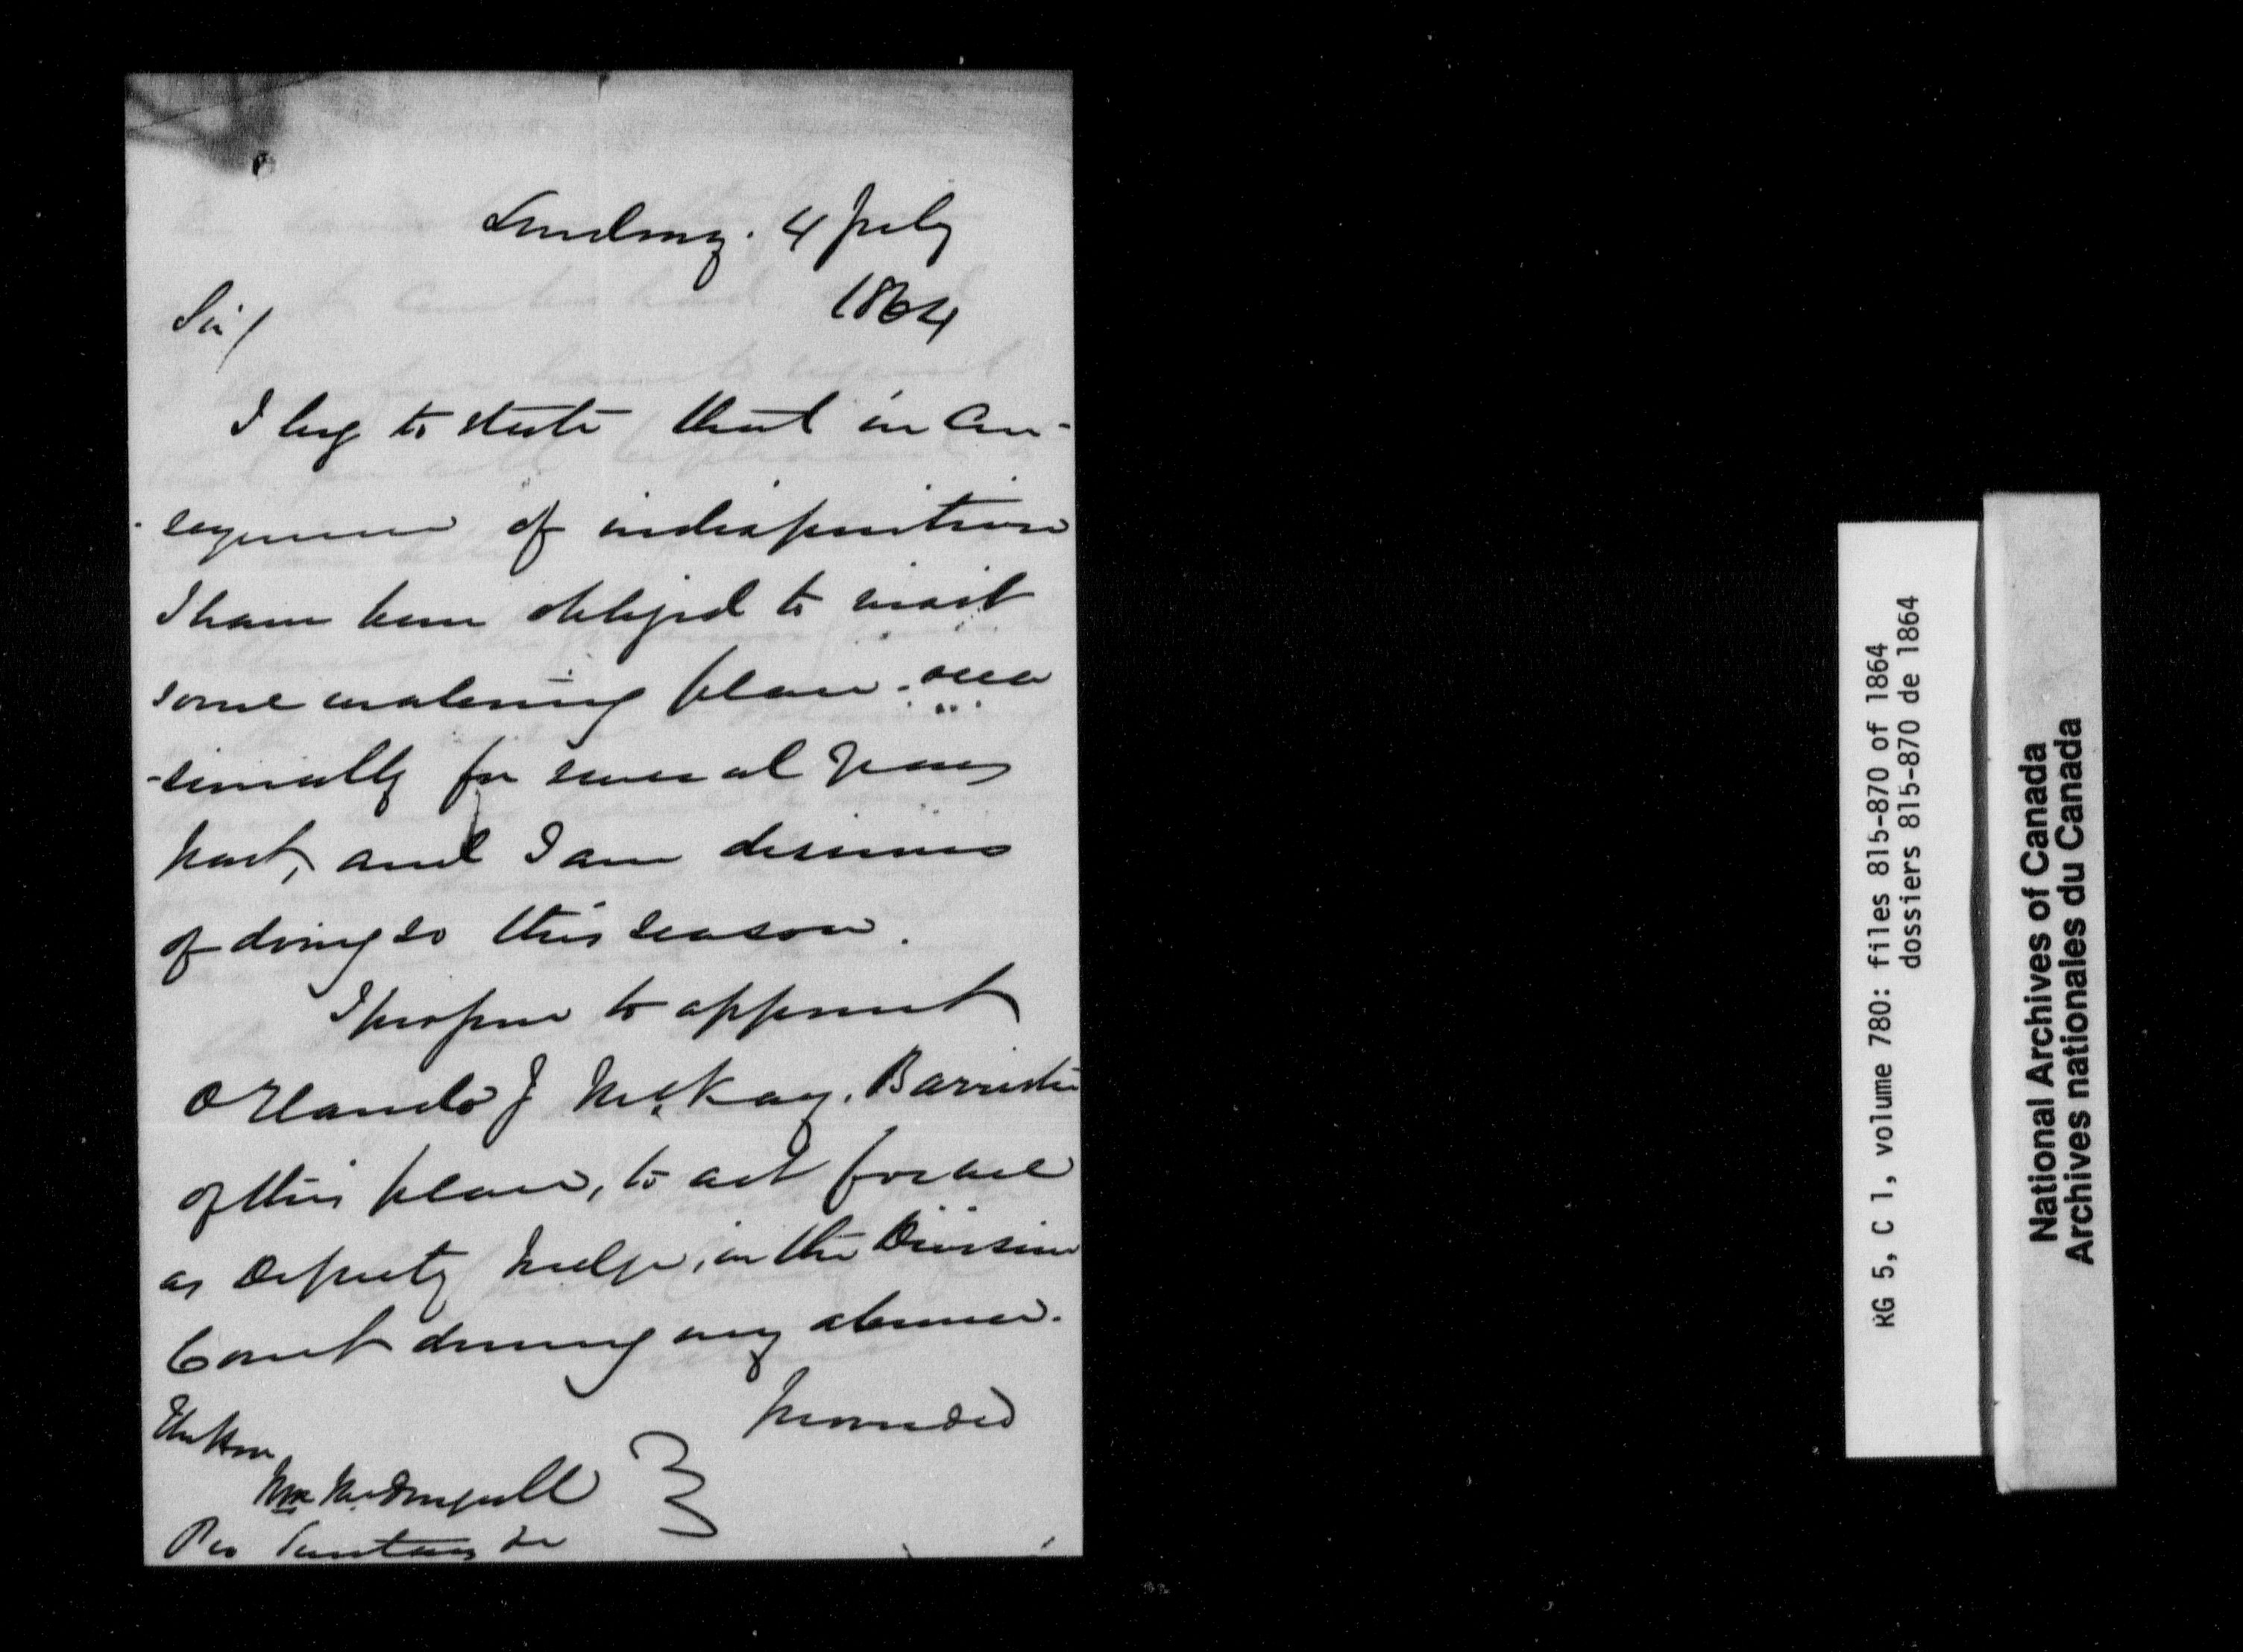 Lindsay. 4 July
1864
Sir/
I beg to state that in Con-
-sequence of indisposition
I have been obliged to visit
some watering place. occa
-sionally for several years
past, and I am desirous
of doing so this season.
I propose to appoint
Orlando J McKay. Barrister
of this place, to act for me
as Deputy Judge, in the Division
Court during my absence.
The Hon
Wm McDougall
Pro Secretary &c
RG 5, C 1, volume 780: files 815-870 of 1864
dossiers 815-870 de 1864
National Archives of Canada
Archives nationales du Canada